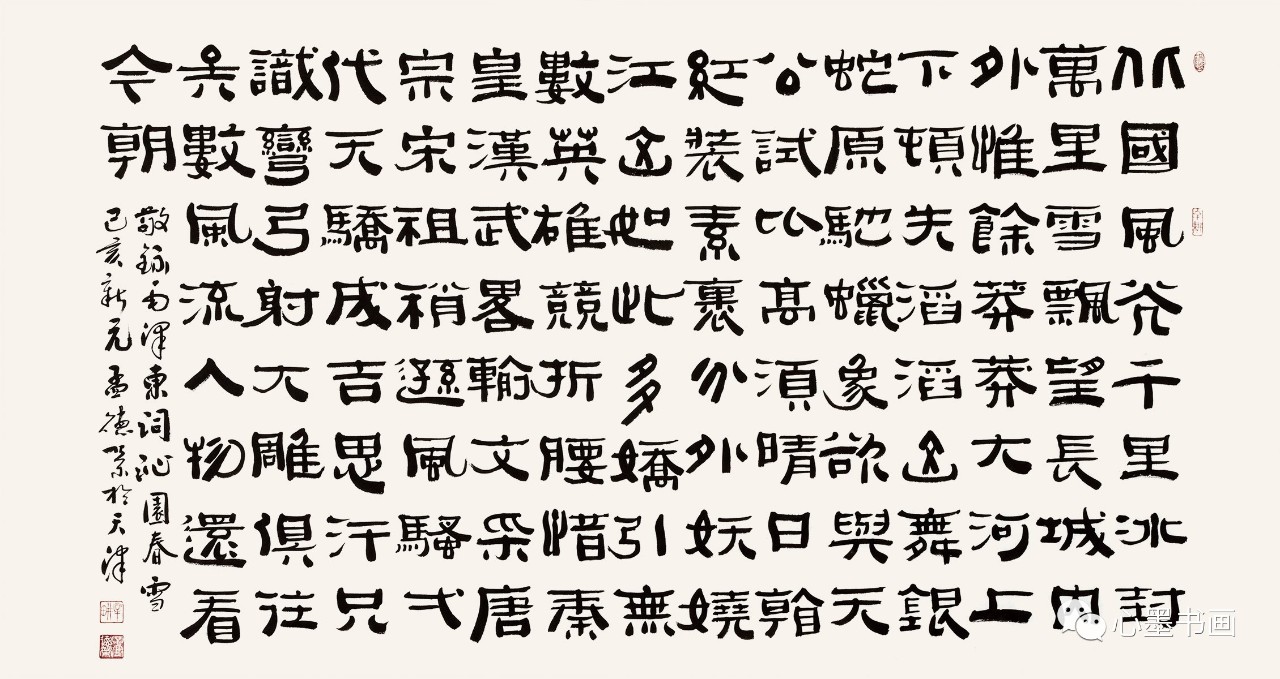 北國風光千里冰封
萬里雪飄望長城內
外惟餘莽莽大河上
下頓失滔滔山舞銀
蛇原馳蠟象欲與天
公試比高須晴日看
紅裝素裹分外妖嬈
江山如此多嬌引無
數英雄競折腰惜秦
皇漢武畧輸文采唐
宗宋祖稍遜風騷弌
代天驕成吉思汗只
識彎弓射大雕俱往
矣數風流人物還看
今朝
敬錄毛澤東詞沁園春雪
己亥新元孟德於天津
心墨书画